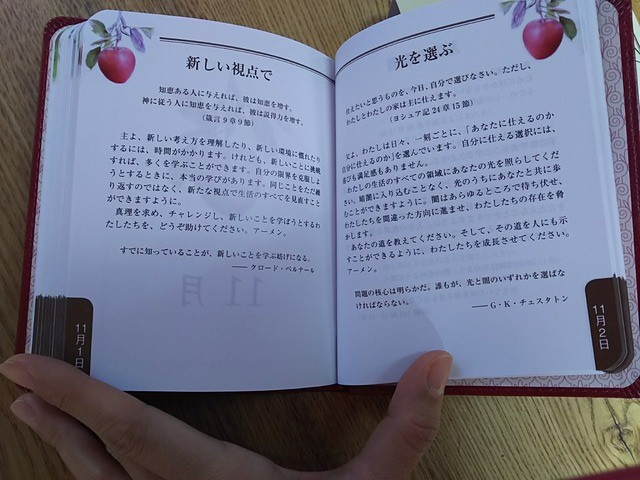 新しい視点で
知恵ある人に与えれば、彼は知恵を増す。
神に従う人に知恵を与えれば、彼は説得力を増す。
（箴言9章9節）
主よ、新しい考え方を理解したり、新しい環境に慣れたり
するには、時間がかかります。けれども、新しいことに挑戦
すれば、多くを学ぶことができます。自分の限界を克服しよ
うとするときに、本当の学びがあります。同じことをただ繰
り返すのではなく、新たな視点で生活のすべてを見直すこと
ができますように。
真理を求め、チャレンジし、新しいことを学ぼうとするわ
たしたちを、どうぞ助けてください。アーメン。
すでに知っていることが、新しいことを学ぶ妨げになる。
――クロード・ベルナール
11月1日
光を選ぶ
仕えたいと思うものを、今日、自分で選びなさい。ただし、
わたしとわたしの家は主に仕えます。
（ヨシュア記24章15節）
父よ、わたしは日々、一刻ごとに、「あなたに仕えるのか
自分に仕えるのか」を選んでいます。自分に仕える選択には、
喜びも満足感もありません。
わたしの生活のすべての領域にあなたの光を照らしてくだ
さい。暗闇に入り込むことなく、光のうちにあなたと共に歩
むことができますように。闇はあらゆるところで待ち伏せ、
わたしたちを間違った方向に進ませ、わたしたちの存在を脅
かします。
あなたの道を教えてください。そして、その道を人にも示
すことができるように、わたしたちを成長させてください。
アーメン。
問題の核心は明らかだ。誰もが、光と闇のいずれかを選ばな
ければならない。
――G・K・チェスタトン
11月2日